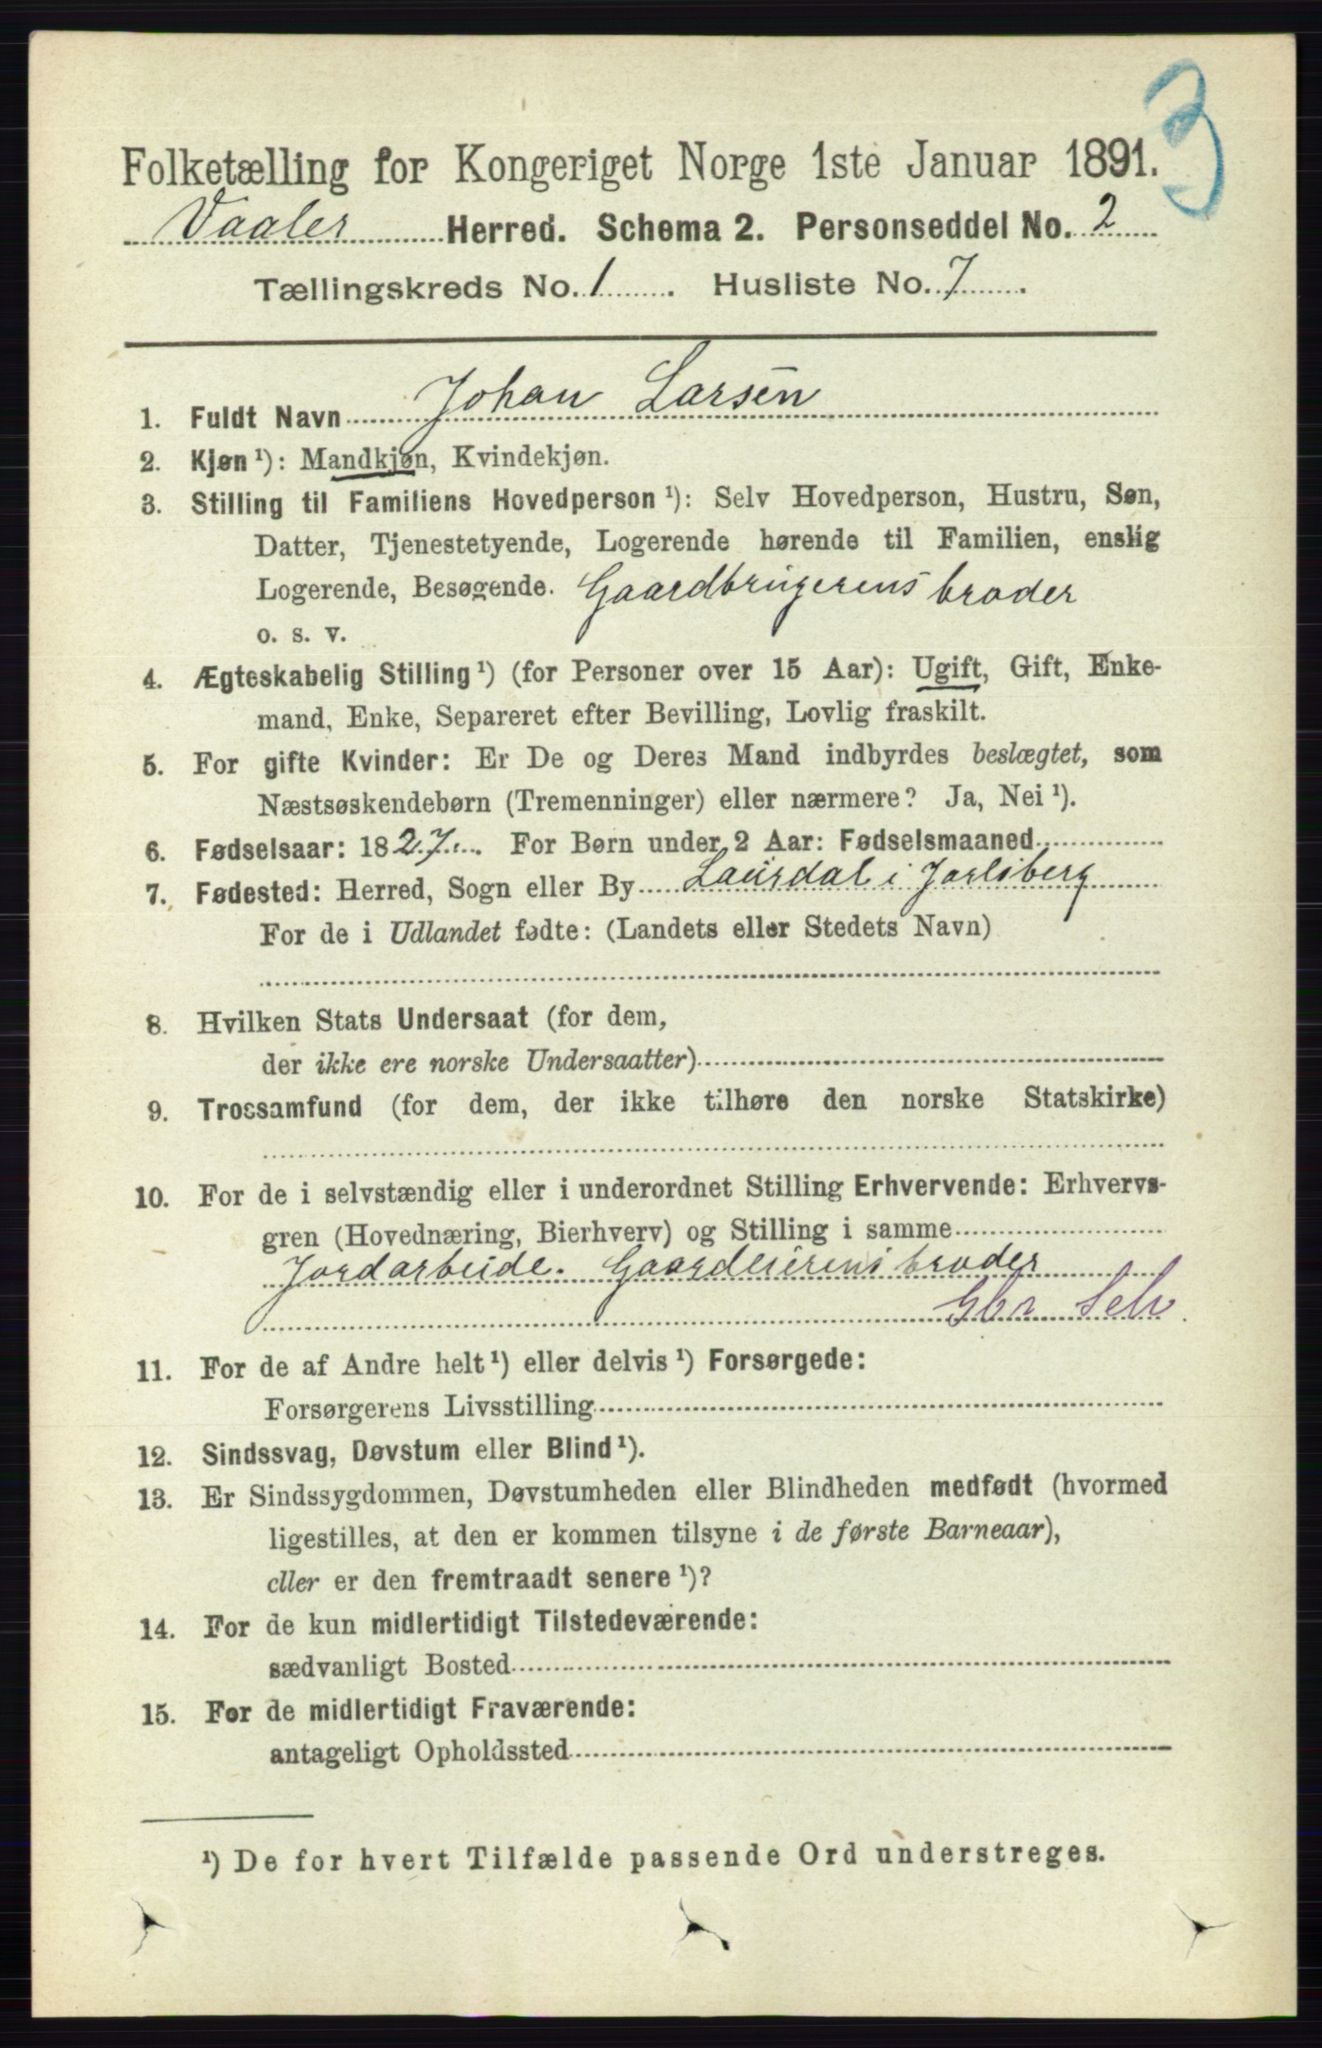 3
Folketælling for Kongeriget Norge 1ste Januar 1891.
Vaaler Herred. Schema 2. Personseddel No. 2
Tællingskreds No. 1. Husliste No. 7.
1. Fuldt Navn Johan Larsen
2. Kjøn ¹): Mandkjøn, Kvindekjøn.
3. Stilling til Familiens Hovedperson ¹): Selv Hovedperson, Hustru, Søn,
Datter, Tjenestetyende, Logerende hørende til Familien, enslig
Logerende, Besøgende. Gaardbrugerens broder
o. s. v.
4. Ægteskabelig Stilling ¹) (for Personer over 15 Aar): Ugift, Gift, Enke-
mand, Enke, Separeret efter Bevilling, Lovlig fraskilt.
5. For gifte Kvinder: Er De og Deres Mand indbyrdes beslægtet, som
Næstsøskendebørn (Tremenninger) eller nærmere? Ja, Nei ¹).
6. Fødselsaar: 1827. For Børn under 2 Aar: Fødselsmaaned
7. Fødested: Herred, Sogn eller By Laurdal i Jarlsberg
For de i Udlandet fødte: (Landets eller Stedets Navn)
8. Hvilken Stats Undersaat (for dem,
der ikke ere norske Undersaatter)
9. Trossamfund (for dem, der ikke tilhøre den norske Statskirke)
10. For de i selvstændig eller i underordnet Stilling Erhvervende: Erhvervs-
gren (Hovednæring, Bierhverv) og Stilling i samme
Jordarbeide. Gaardeierens broder
Gbr Selv
11. For de af Andre helt ¹) eller delvis ¹) Forsørgede:
Forsørgerens Livsstilling
12. Sindssvag, Døvstum eller Blind ¹).
13. Er Sindssygdommen, Døvstumheden eller Blindheden medfødt (hvormed
ligestilles, at den er kommen tilsyne i de første Barneaar),
eller er den fremtraadt senere ¹)?
14. For de kun midlertidigt Tilstedeværende:
sædvanligt Bosted
15. For de midlertidigt Fraværende:
antageligt Opholdssted
¹) De for hvert Tilfælde passende Ord understreges.